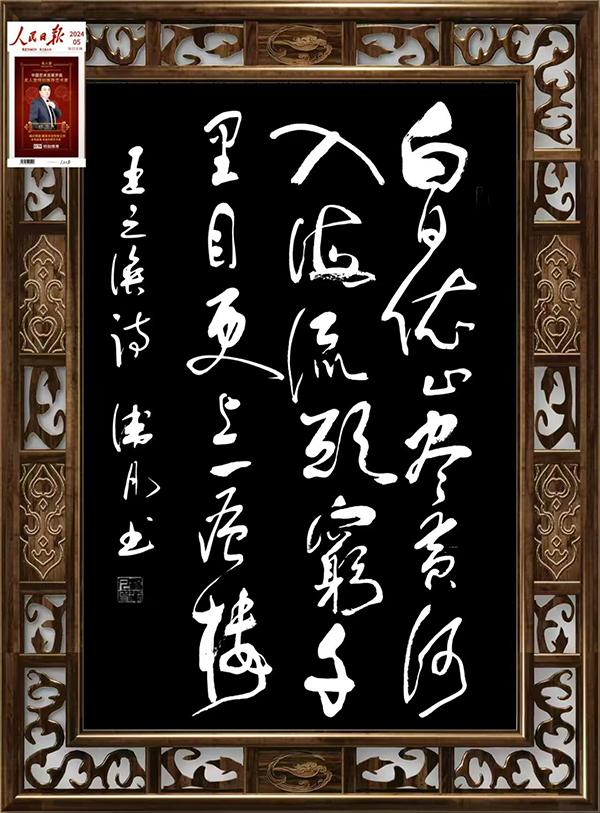 人民日报
2024
05
白日依山尽黄河
入海流欲窮千
里目更上一层楼
王之涣诗
书